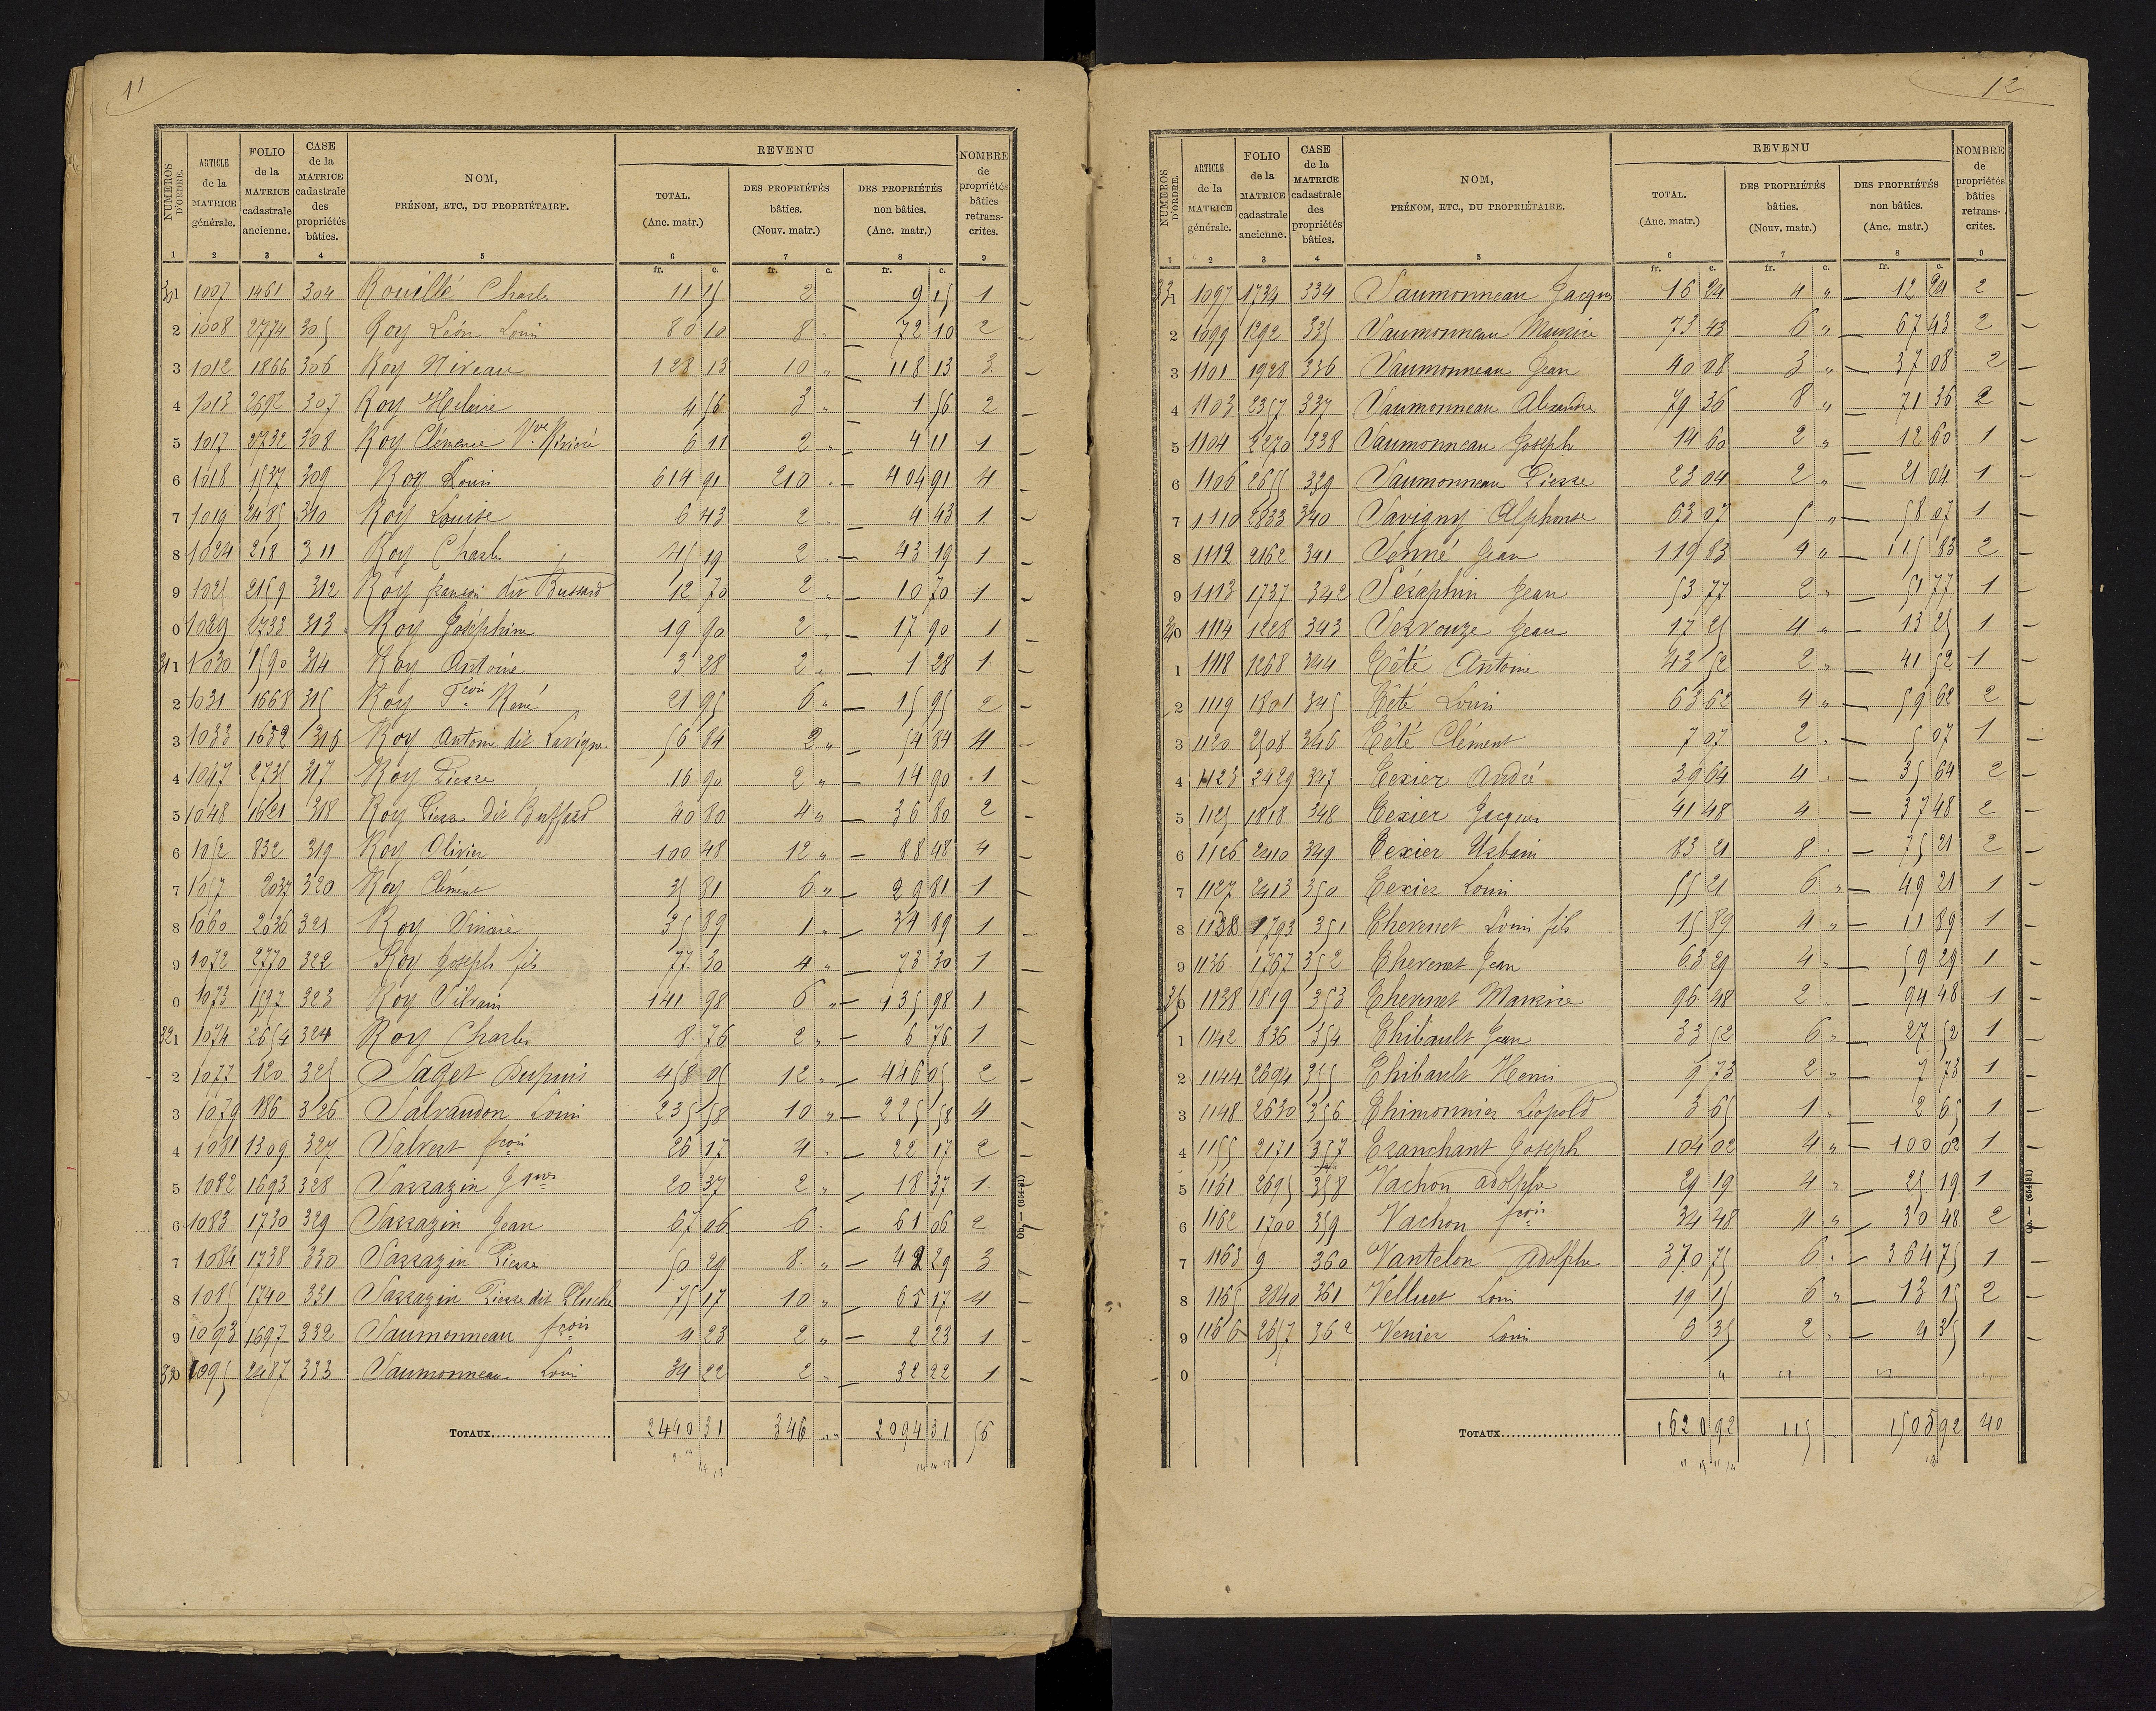 11
NUMÉROS D'ORDRE. | ARTICLE de la MATRICE générale. | FOLIO de la MATRICE cadastrale ancienne. | CASE de la MATRICE cadastrale des propriétés bâties. | NOM, PRÉNOM, ETC., DU PROPRIÉTAIRE. | REVENU TOTAL. (Anc. matr.) | DES PROPRIÉTÉS bâties. (Nouv. matr.) | DES PROPRIÉTÉS non bâties. (Anc. matr.) | NOMBRE de propriétés bâties retranscrites.
1 2 3 4 5 6 7 8 9
fr. c. fr. c. fr. c.
301 1007 1461 304 Rouillé Charles 11 15 2 9 15 1
2 1008 2774 305 Roy Léon Louis 80 10 8 " 72 10 2
3 1012 1866 306 Roy Niveau 128 13 10 " 118 13 3
4 1013 2692 307 Roy Hilaire 4 56 3 " 1 56 2
5 1017 2732 308 Roy Clémence Vve 6 11 2 " 4 11 1
6 1018 1537 309 Roy Louis 614 91 210 " 404 91 4
7 1019 2485 310 Roy Louise 6 43 2 " 4 43 1
8 1024 218 311 Roy Charles 45 19 2 " 43 19 1
9 1025 2159 312 Roy françois dit Bussard 12 70 2 " 10 70 1
0 1029 2733 313 Roy Joséphine 19 90 2 " 17 90 1
311 1030 1590 314 Roy Antoine 3 28 2 " 1 28 1
2 1031 1668 315 Roy Fçois René 21 95 6 " 15 95 2
3 1033 1632 316 Roy Antoine dit Lavigne 56 84 2 " 54 84 4
4 1047 2735 317 Roy Pierre 16 90 2 " 14 90 1
5 1048 1621 318 Roy Pierre dit Buffard 40 80 4 " 36 80 2
6 1052 832 319 Roy Olivier 100 48 12 " 88 48 4
7 1057 2037 320 Roy Clément 35 81 6 " 29 81 1
8 1060 2036 321 Roy 35 89 1 " 34 89 1
9 1072 2770 322 Roy Joseph fils 77 30 4 " 73 30 1
0 1073 1597 323 Roy Silvain 141 98 6 " 135 98 1
321 1074 2654 324 Roy Charles 8 76 2 " 6 76 1
2 1077 120 325 Saget Dupuis 458 05 12 " 446 05 2
3 1079 186 326 Salvaudon Louis 235 58 10 " 225 58 4
4 1081 1309 327 Salvert fçois 26 17 4 " 22 17 2
5 1082 1693 328 Sarrazin Jques 20 37 2 " 18 37 1
6 1083 1730 329 Sarrazin Jean 67 06 6 " 61 06 2
7 1084 1738 330 Sarrazin Pierre 50 29 8 " 42 29 3
8 1085 1740 331 Sarrazin Pierre dit Pluche 75 17 10 " 65 17 4
9 1093 1697 332 Saumonneau fçois 4 23 2 " 2 23 1
330 1095 2487 333 Saumonneau Louis 34 22 2 " 32 22 1
TOTAUX 2440 31 346 " " 2094 31 56
Ob. — (654-81)
12
NUMÉROS D'ORDRE. | ARTICLE de la MATRICE générale. | FOLIO de la MATRICE cadastrale ancienne. | CASE de la MATRICE cadastrale des propriétés bâties. | NOM, PRÉNOM, ETC., DU PROPRIÉTAIRE. | REVENU TOTAL. (Anc. matr.) | DES PROPRIÉTÉS bâties. (Nouv. matr.) | DES PROPRIÉTÉS non bâties. (Anc. matr.) | NOMBRE de propriétés bâties retranscrites.
1 2 3 4 5 6 7 8 9
fr. c. fr. c. fr. c.
331 1097 1734 334 Saumonneau Jacques 16 24 4 " 12 24 2
2 1099 1292 335 Saumonneau Maurice 73 43 6 " 67 43 2
3 1101 1928 336 Saumonneau Jean 40 08 3 " 37 08 2
4 1103 2357 337 Saumonneau Alexandre 79 36 8 " 71 36 2
5 1104 2270 338 Saumonneau Joseph 14 60 2 " 12 60 1
6 1106 2655 339 Saumonneau Pierre 23 04 2 " 21 04 1
7 1110 2833 340 Savigny Alphonse 63 07 5 " 58 07 1
8 1112 2162 341 Senné Jean 119 83 4 " 115 83 2
9 1113 1737 342 Séraphin Jean 53 77 2 " 51 77 1
340 1114 1228 343 Servouze Jean 17 25 4 " 13 25 1
1 1118 1268 344 Têté Antoine 43 52 2 " 41 52 1
2 1119 1801 345 Têté Louis 63 62 4 " 59 62 2
3 1120 2508 346 Têté Clément 7 07 2 " 5 07 1
4 1123 2429 347 Texier André 39 64 4 " 35 64 2
5 1125 1818 348 Texier Jacques 41 48 4 37 48 2
6 1126 2410 349 Texier Urbain 83 21 8 " 75 21 2
7 1127 2413 350 Texier Louis 55 21 6 " 49 21 1
8 1133 1793 351 Thevenet Louis fils 15 89 4 " 11 89 1
9 1136 1767 352 Thevenet Jean 63 29 4 " 59 29 1
350 1138 1819 353 Thevenet Maurice 96 48 2 " 94 48 1
1 1142 836 354 Thibault Jean 33 52 6 " 27 52 1
2 1144 2694 355 Thibault Henri 9 73 2 " 7 73 1
3 1148 2630 356 Thimonnier Léopold 3 65 1 " 2 65 1
4 1155 2171 357 Tranchant Joseph 104 02 4 " 100 02 1
5 1161 2695 358 Vachon adolphe 29 19 4 " 25 19 1
6 1162 1700 359 Vachon fçois 34 48 4 " 30 48 2
7 1163 9 360 Vantelon Adolphe 370 75 6 " 364 75 1
8 1165 2840 361 Velluet Louis 19 15 6 " 13 15 2
9 1166 2657 362 Venier Louis 6 35 2 " 4 35 1
0 " " " "
TOTAUX 1620 92 115 1505 92 40
Ob. — (654-81)